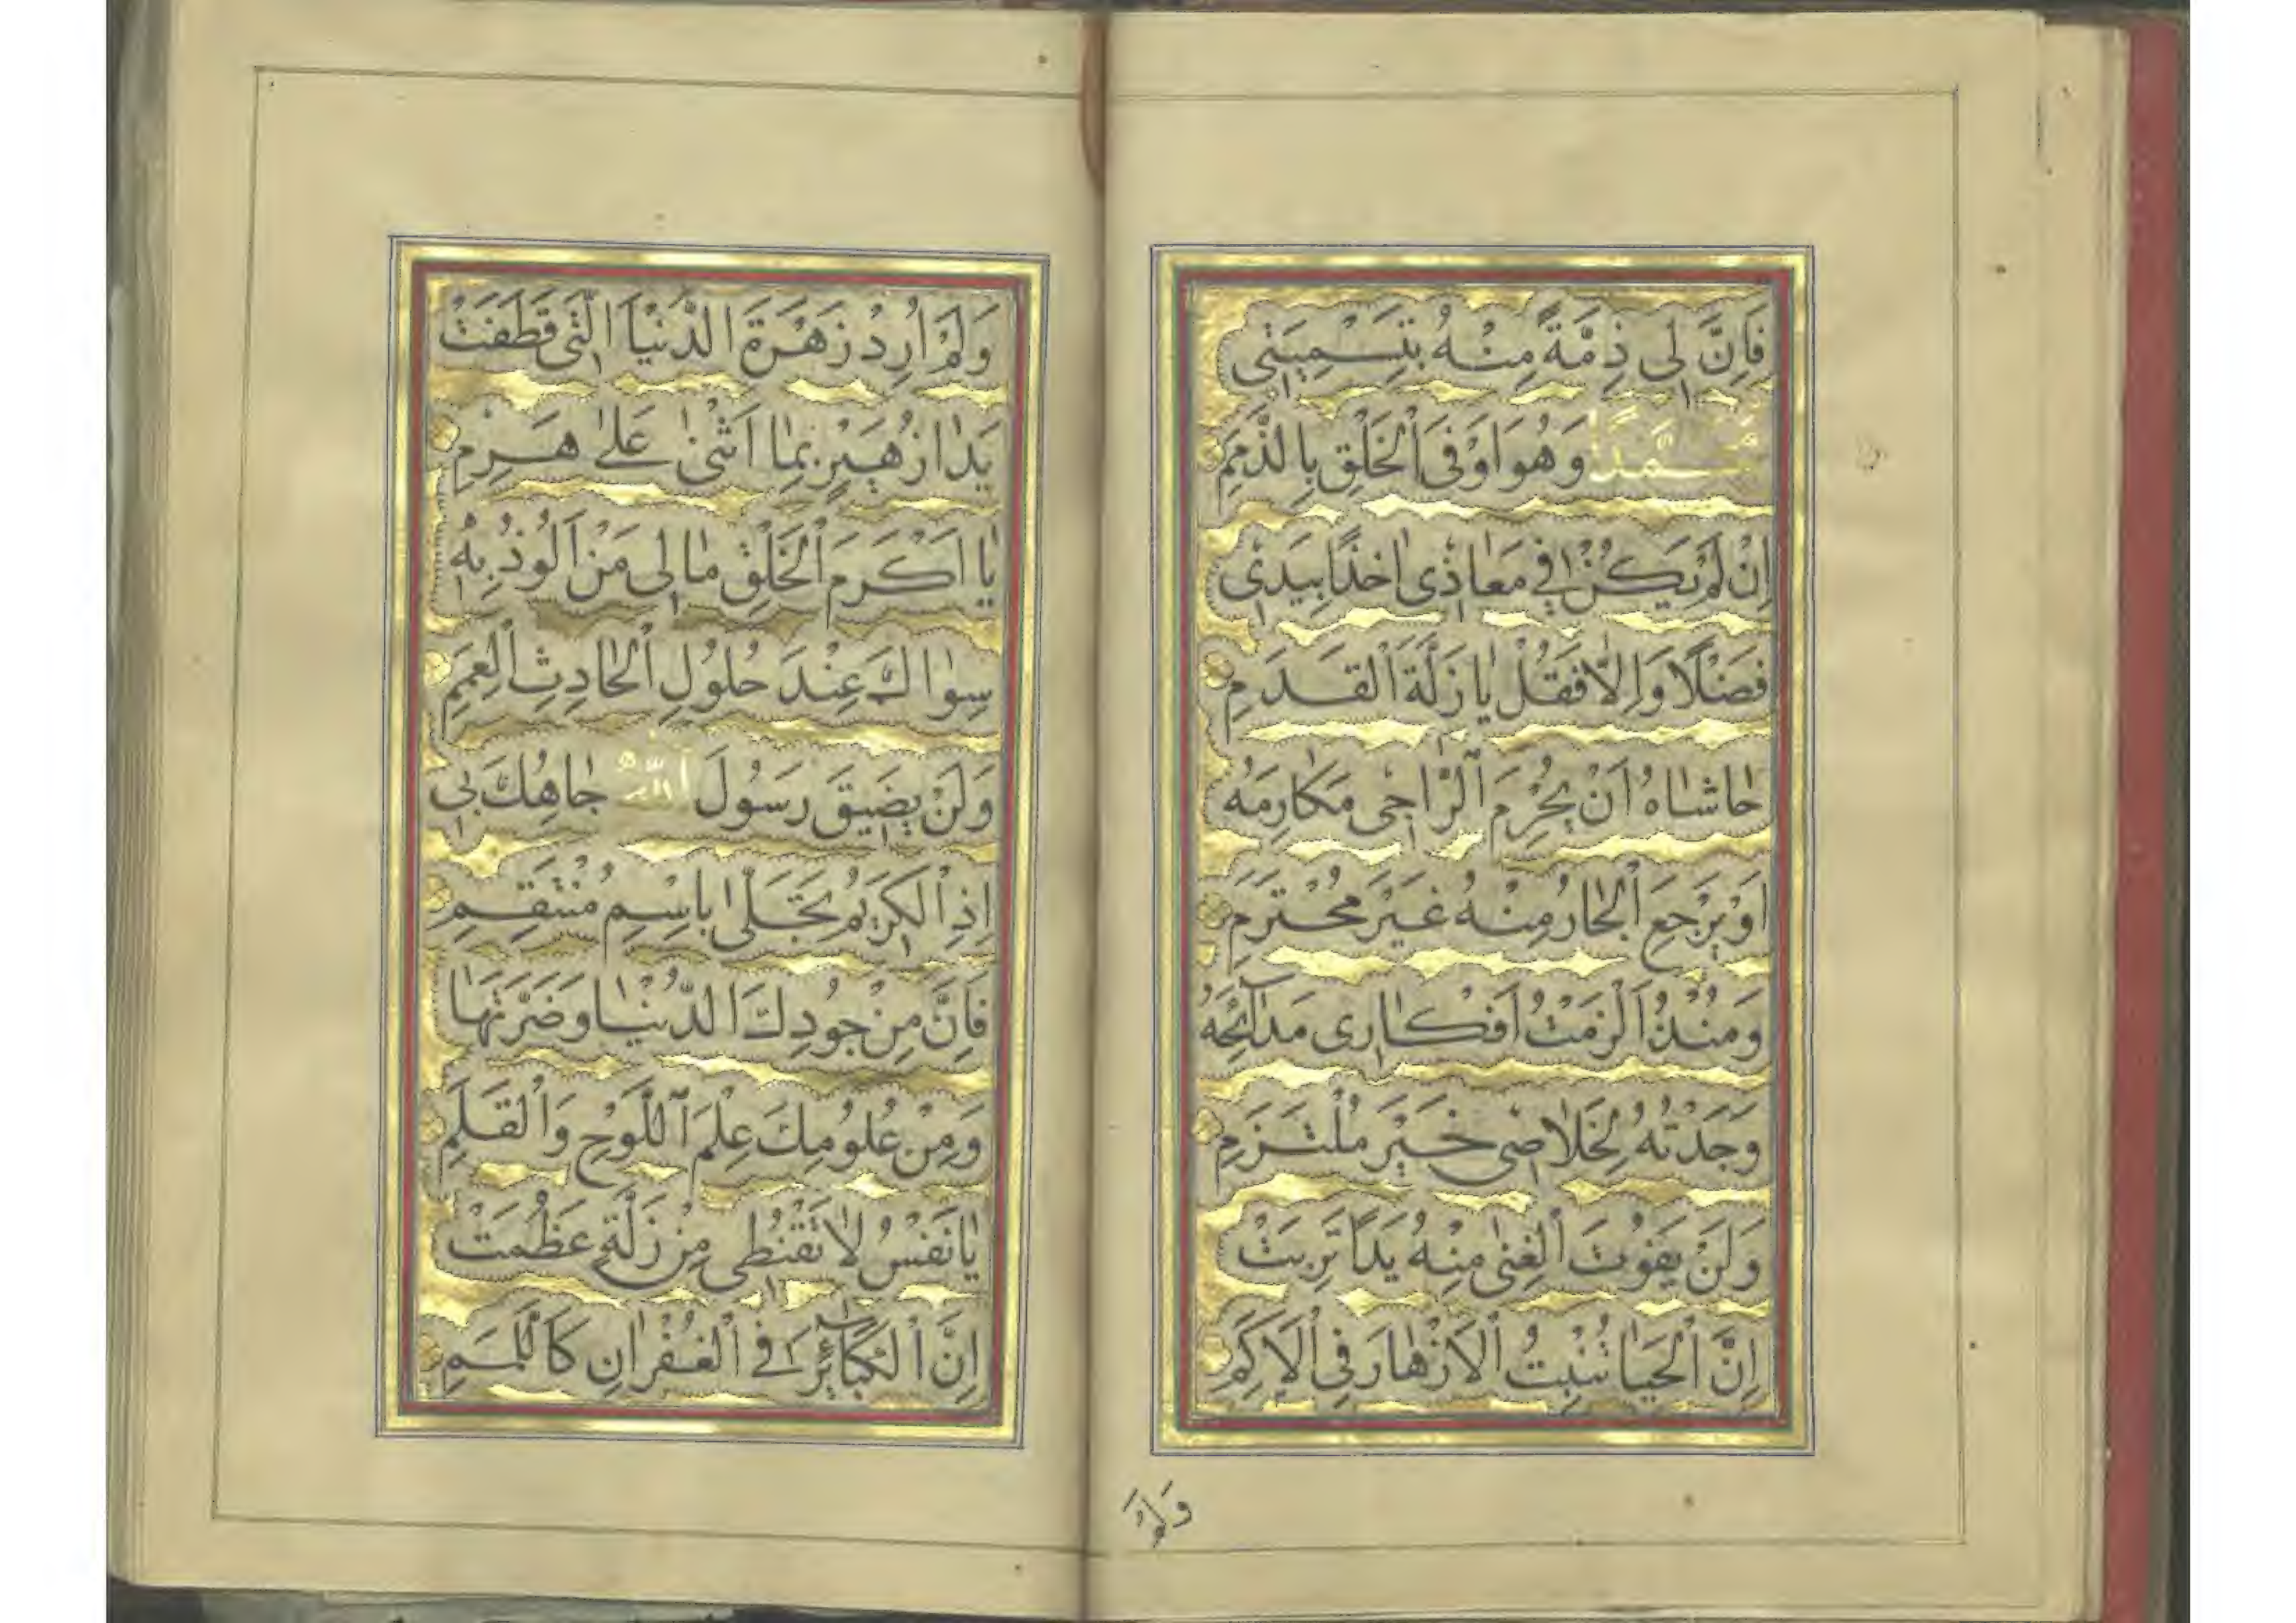 فَاِنَّ لى ذِمَّةً مِنْهُ بِتَسْمِيَتى
مُحَمَّدًا وَهُوَ اَوْفَى اْلخَلْقِ بِالذِّمَمِ
اِنْ لَمْ يَكُنْ فى مَعَاذى اٰخِذًا بِيَدى
فَضْلًا وَاِلَّا فَقُلْ يَا زَلَّةَ الْقَدَمِ
حَاشَاهُ اَنْ يُحْرِمَ الرَّاجى مَكَارِمَهُ
اَوْ يَرْجِعَ الْجَارُ مِنْهُ غَيْرَ مُحْتَرَمِ
وَمُنْذُ اَلْزَمْتُ اَفْكَارى مَدَآئِحَهُ
وَجَدْتُهُ لِخَلَاصى خَيْرَ مُلْتَزَمِ
وَلَنْ يَفُوتَ الْغِنٰى مِنْهُ يَدًا تَرِبَتْ
اِنَّ الْحَيَا يُنْبِتُ الْاَزْهَارَ فِى الْاَكَمِ
وَلَمْ
وَلَمْ اُرِدْ زَهْرَةَ الدُّنْيَا الَّتى قَطَفَتْ
يَدَا زُهَيْرٍ بِمَا اَثْنٰى عَلٰى هَرِمِ
يَا اَكْرَمَ الْخَلْقِ مَا لى مَنْ اَلُوذُ بِه
سِوَاكَ عِنْدَ حُلُولِ الْحَادِثِ الْعَمِمِ
وَلَنْ يَضيقَ رَسُولَ اللهِ جَاهُكَ بى
اِذِ الْكَريمُ تَجَلّٰى بِاسْمِ مُنْتَقِمِ
فَاِنَّ مِنْ جُودِكَ الدُّنْيَا وَضَرَّتَهَا
وَمِنْ عُلُومِكَ عِلْمَ اللَّوْحِ وَالْقَلَمِ
يَا نَفْسُ لَا تَقْنَطى مِنْ زَلَّةٍ عَظُمَتْ
اِنَّ الْكَبَآئِرَ فِى الْغُفْرَانِ كَاللَّمَمِ